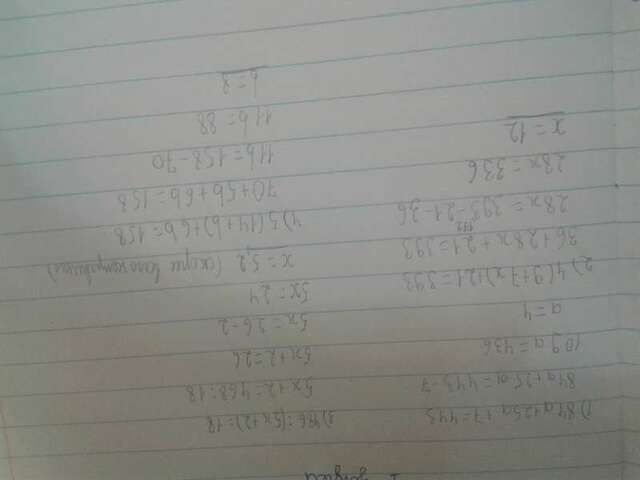 1) 84a+25a+7=443
84a+25a=443-7
109a=436
a=4
2) 4(9+7x)+21=393
36+28x+21=393
372
28x=393-21-36
28x=336
x=12
3) 486:(5x+2)=18
5x+2=468:18
5x+2=26
5x=26-2
5x=24
x=5,2 (скорее всего неправильно)
4) 5(14+b)+6b=158
70+5b+6b=158
11b=158-70
11b=88
b=8